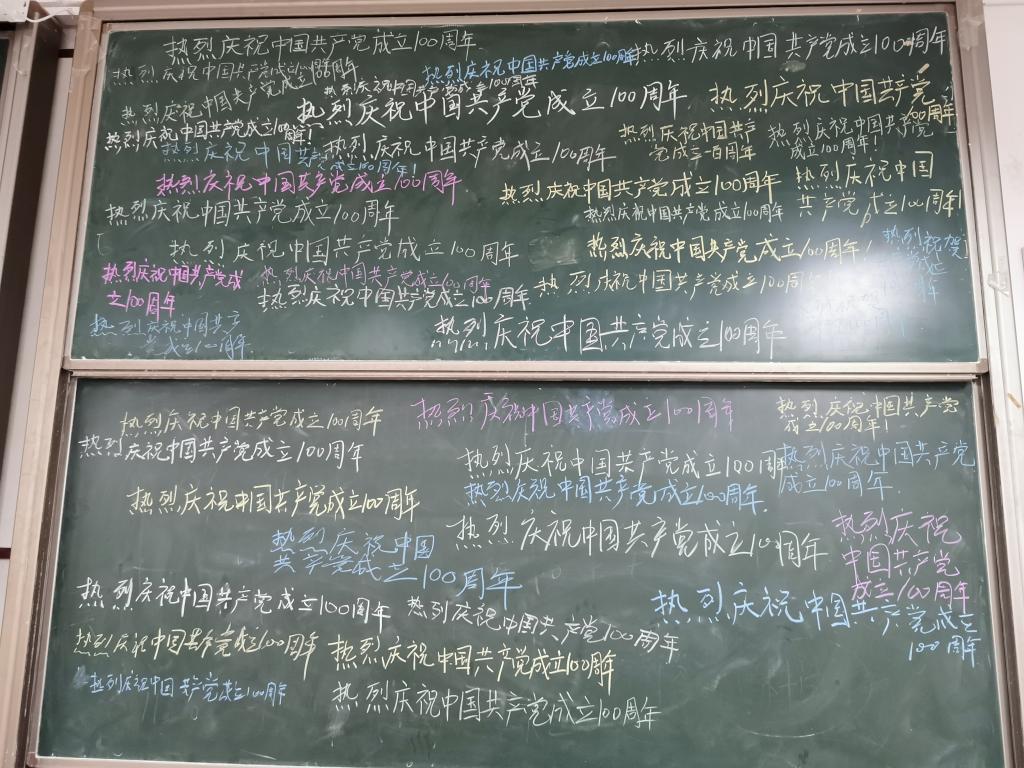 热烈庆祝中国共产党成立100周年
热烈庆祝中国共产党成立100周年
热烈庆祝中国共产党成立100周年
热烈庆祝中国共产党成立100周年
热烈庆祝中国共产党成立100周年
热烈庆祝中国共产党成立
热烈庆祝中国共产党成立100周年
热烈庆祝中国共产党
100周年
热烈庆祝中国共产党成立100
周年!
热烈庆祝中国共产党成立100周年
热烈庆祝中国共产党
成立一百周年
热烈庆祝中国共产党
成立100周年!
热烈庆祝中国共产党
成立100周年!
热烈庆祝中国共产党成立100周年
热烈庆祝中国共产党成立100周年
热烈庆祝中国
共产党成立100周年!
热烈庆祝中国共产党成立100周年
热烈庆祝中国共产党成立100周年
热烈庆祝中国共产党成立100周年
热烈庆祝中国共产党成立100周年!
热烈祝贺
热烈庆祝中国共产党成
立100周年
热烈庆祝中国共产党成立100周年
热烈庆祝中国共产党成立100周年
热烈庆祝中国共产党成立100周
热烈庆祝中国共产
党成立一百周年
热烈庆祝中国共产党成立100周年
热烈庆祝中国共产党成立100周年
热烈庆祝中国共产党成立100周年
热烈庆祝中国共产党
成立100周年!
热烈庆祝中国共产党成立100周年
热烈庆祝中国共产党成立100周年
热烈庆祝中国共产党
成立100周年.
热烈庆祝中国共产党成立100周年.
热烈庆祝中国共产党成立100周年
热烈庆祝中国共产党成立100周年
热烈庆祝
中国共产党
成立100周年
热烈庆祝中国
共产党成立100周年
热烈庆祝中国共产党成立100周年
热烈庆祝中国共产党100周年
热烈庆祝中国共产党成立
100周年
热烈庆祝中国共产党成立100周年
热烈庆祝中国共产党成立100周年
热烈庆祝中国共产党成立100周年
热烈庆祝中国共产党成立100周年